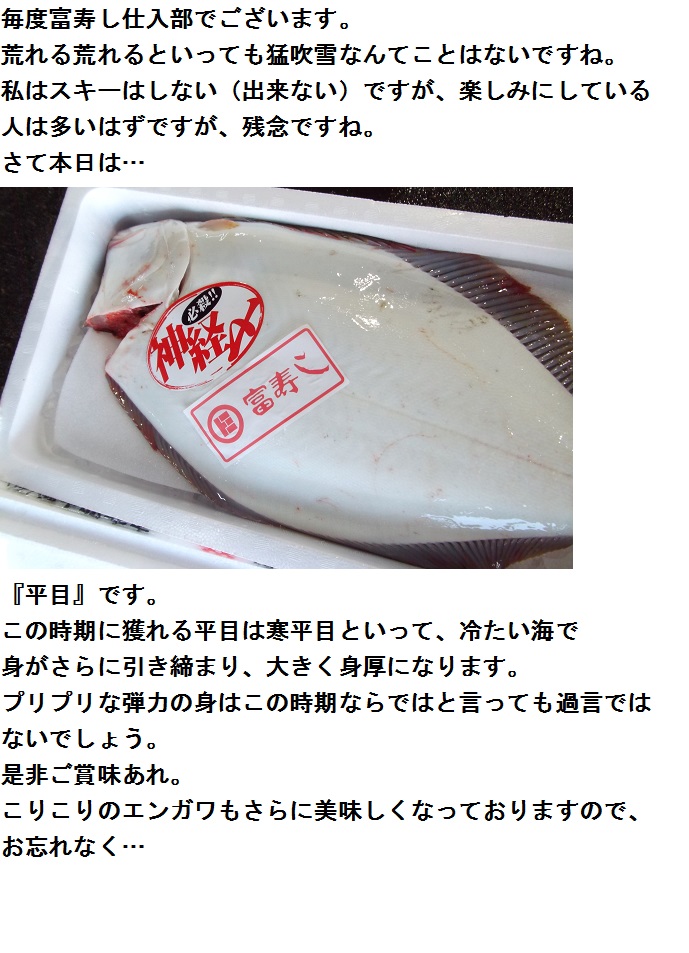 毎度富寿し仕入部でございます。
荒れる荒れるといっても猛吹雪なんてことはないですね。
私はスキーはしない（出来ない）ですが、楽しみにしている
人は多いはずですが、残念ですね。
さて本日は…
必殺!!
神経〆
富寿し
『平目』です。
この時期に獲れる平目は寒平目といって、冷たい海で
身がさらに引き締まり、大きく身厚になります。
プリプリな弾力の身はこの時期ならではと言っても過言では
ないでしょう。
是非ご賞味あれ。
こりこりのエンガワもさらに美味しくなっておりますので、
お忘れなく…